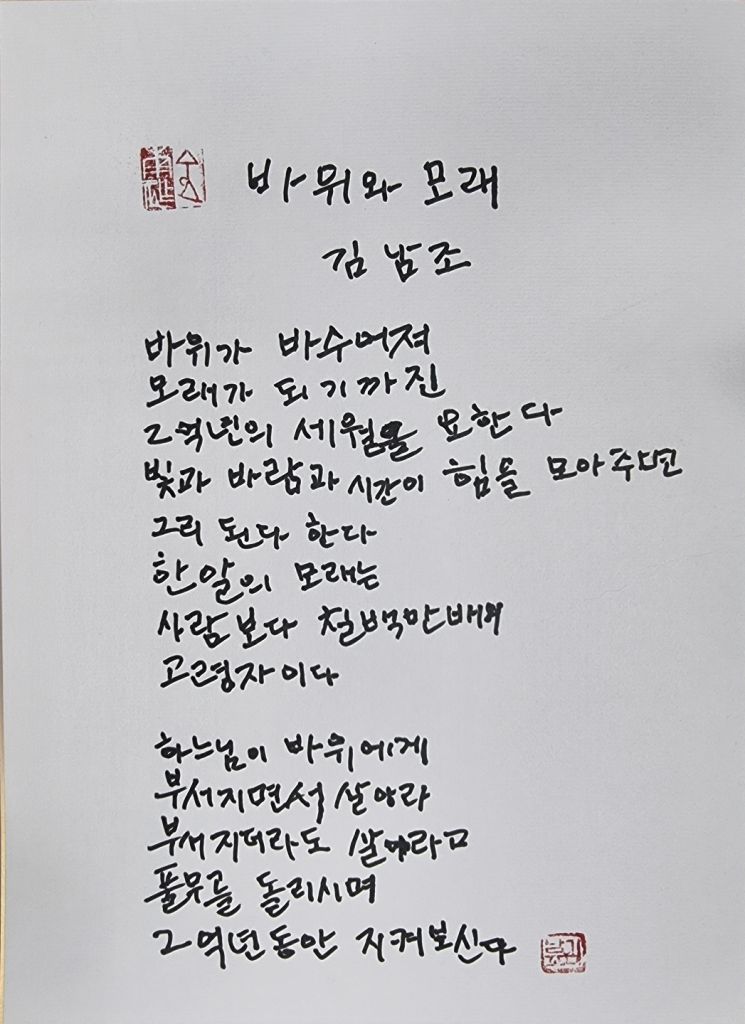 바위와 모래
김남조
바위가 바수어져
모래가 되기까진
그 억년의 세월을 요한다
빛과 바람과 시간이 힘을 모아주면
그리 된다 한다
한알의 모래는
사람보다 칠백만배의
고령자이다
하느님이 바위에게
부서지면서 살아라
부서지더라도 살아라고
풀무를 돌리시며
그 억년동안 지켜보신다